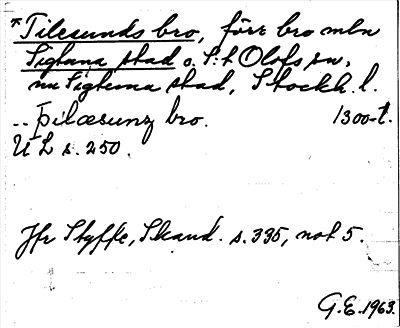 *Tilesunds bro, förr bro mln
Sigtuna stad o. S:t Olofs sn,
nu Sigtuna stad, Stockh. l.
-- Þilæsunz bro. 1300-t.
UL s. 250.
Jfr Styffe, Skand. s. 335, not 5.
G.E. 1963.